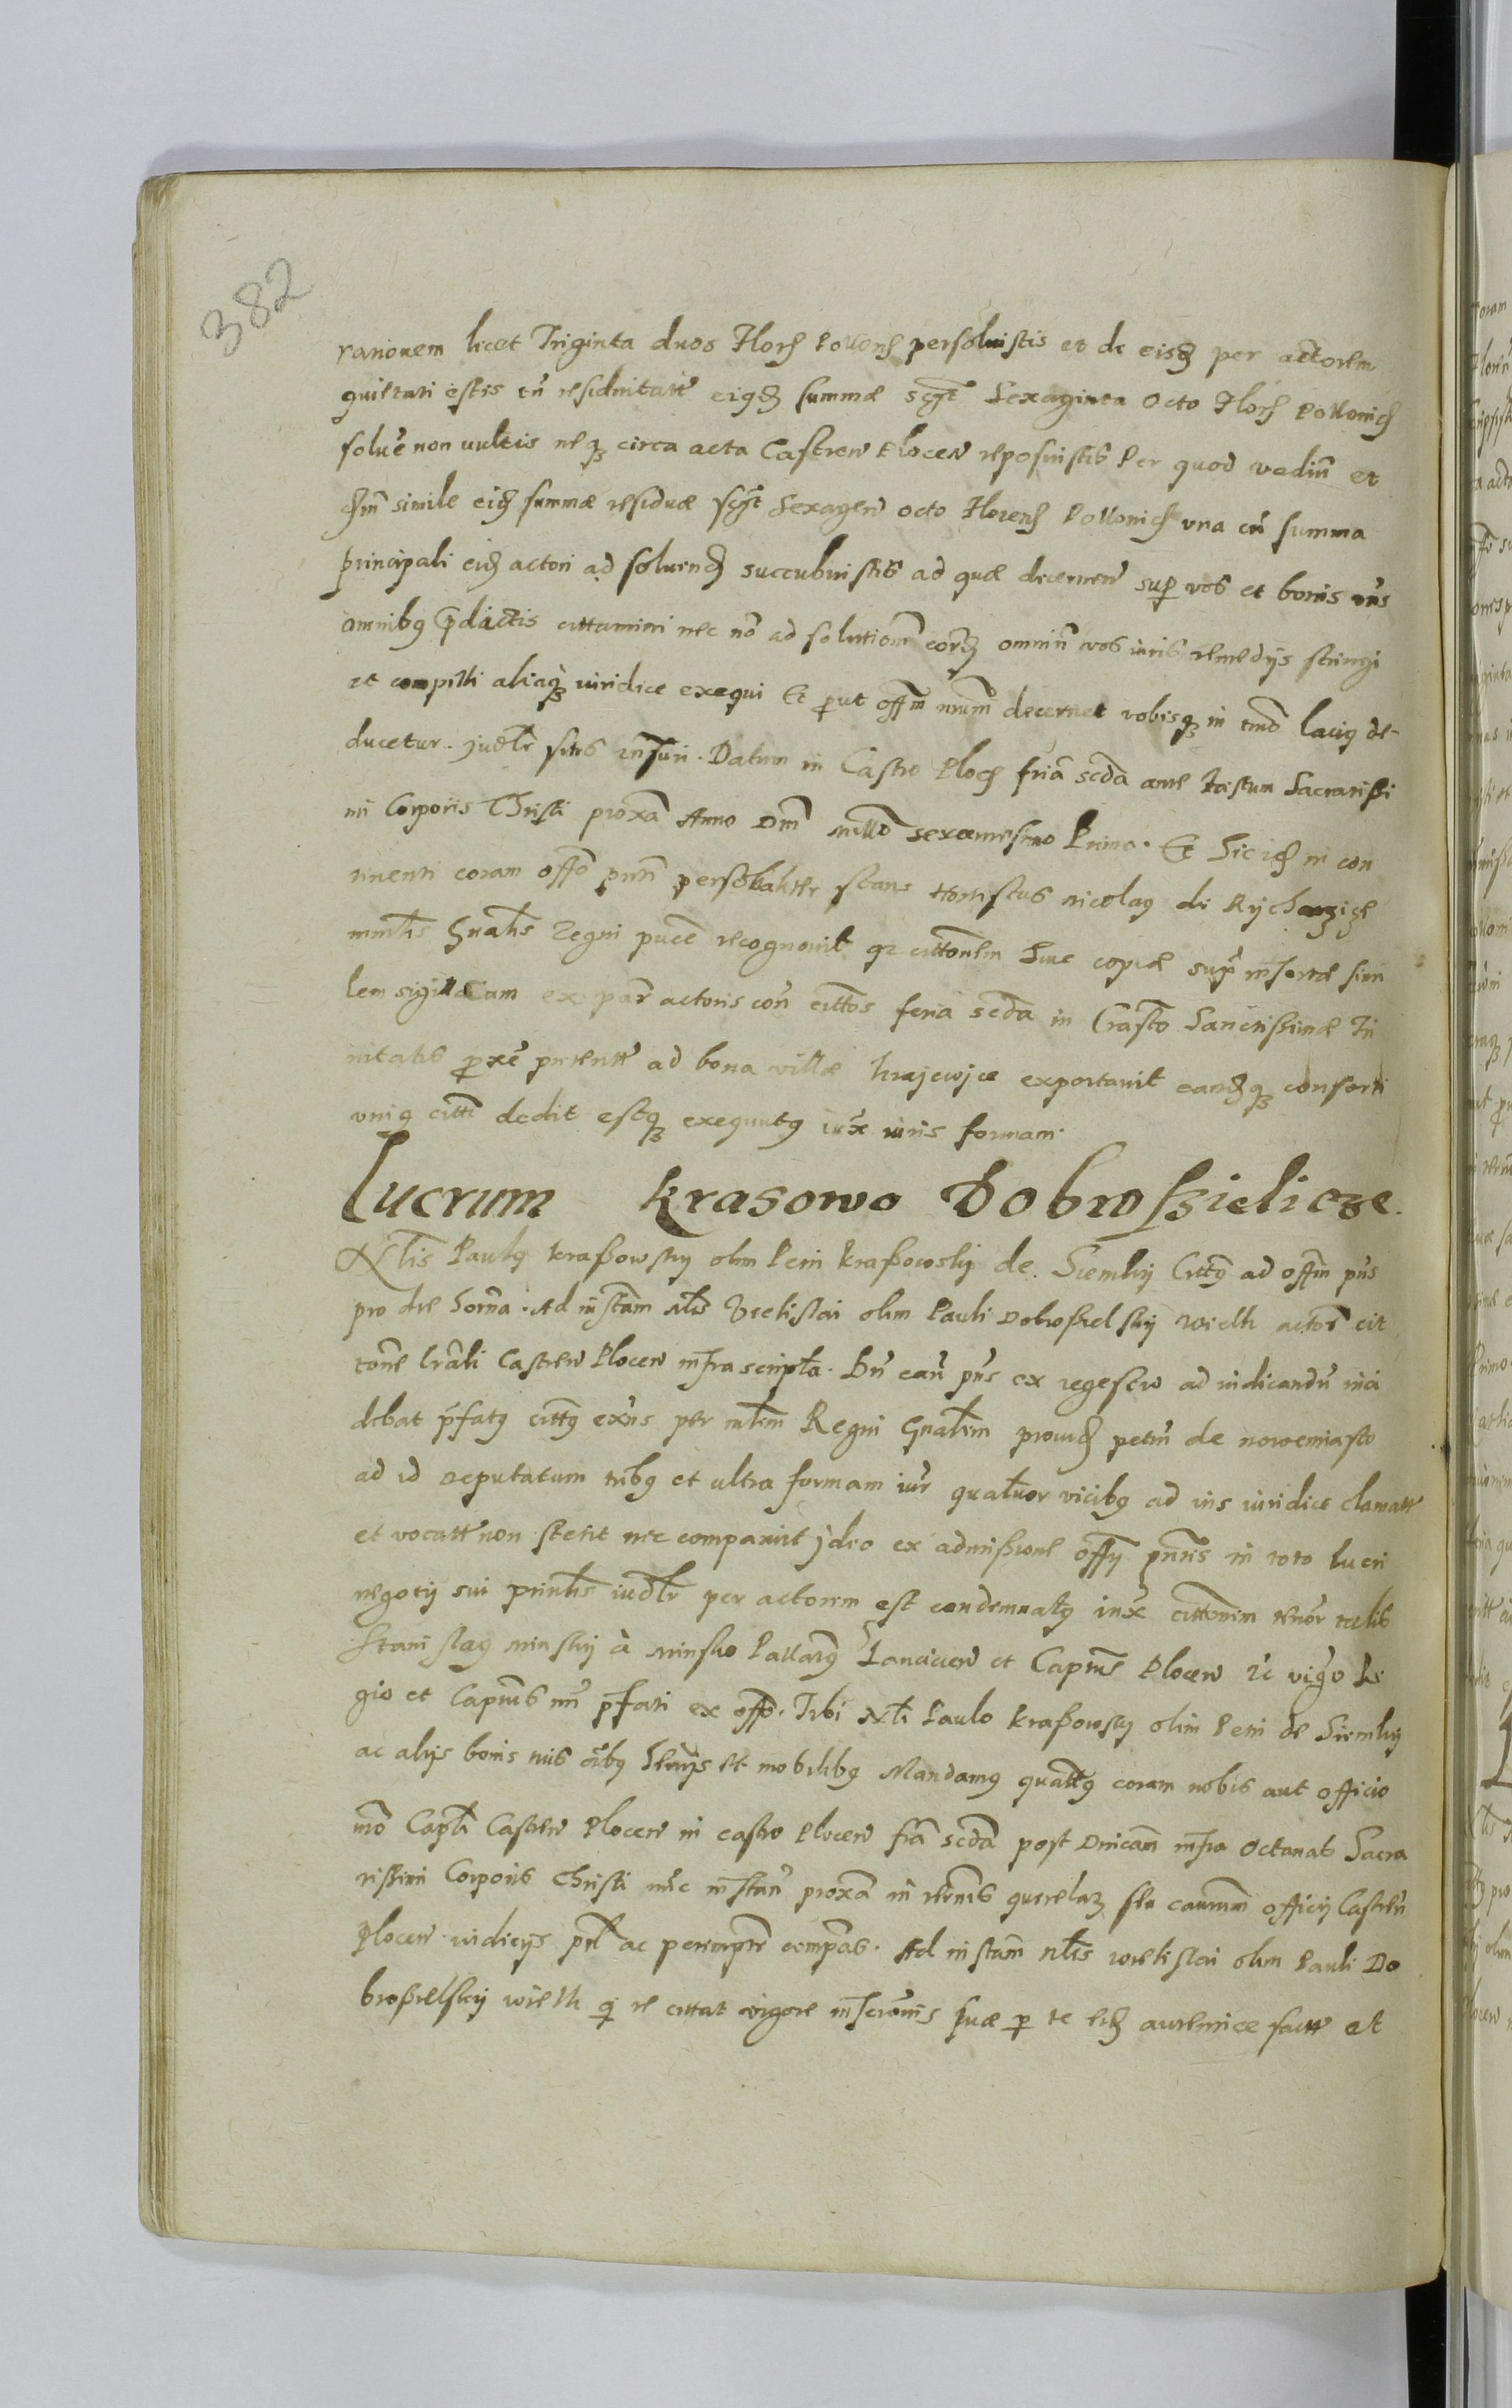 382
rationem licet Triginta duos Florꝭ Pollonꝭ persoluistis et de eisdꝫ per actorem
quietati estis tn̄ residuitatē eiusdꝫ summæ scꝫt Sexaginta Octo Florꝭ Polloniꝭ
solue non uultis neqꝫ circa acta Castren Plocen reposuistis Per quod vadiū et
simile eidꝫ summæ residuæ scꝫt Sexagen octo Florenꝭ Polloniꝭ vna cū summa
principali eidꝫ actori ad soluendꝫ succubuistis ad quæ decernen sup vos et bonis vr̄is
omnibꝰ p̄dictis cittamini nec nō ad solutionē eorꝫ omniū vos iuris remedijs stringi
et compelli aliaqꝫ iuridice exequi Et prout offm nrum decernet vobisqꝫ in tmō laciꝰ de-
ducetur. judlr sitis insuri. Datum in Castro Ploc fria scda ante Festum Sacratissi
mi Corporis Christi proxa Anno Dni millo sexcentesimo Primo. Et Sic idꝫ in con
tinenti coram offo pnti personaliter stans Honestus Nicolaꝰ de Rycharzicze
mnrlis Gnalis Regni pūce recognouit qꝫ cittonem Siue copiæ supr insertæ simi
lem sigillatam ex par actoris con cittos feria scda in Crasto Sanctissimæ Tri
nitatis proxe preterite ad bona villæ krajewice exportauit eandqꝫ consorti
vniꝰ citti dedit estqꝫ exequutꝰ iux iuris formam.
Lucrum krasowo Dobrosszielicze.
Nlis Paulꝰ krassowsky olim Petri krassowskij de Siemky Cittꝰ ad offm pns
pro die horna. Ad instam Nlis Vretislai olim Pauli Dobrosselskij wielk actors cit
tone lrali Castren Plocen infrascripta. Dn caū pns ex regestro ad iudicandū inci
debat p̄fatꝰ cittꝰ exns per mlem Regni Gnalem prouidꝫ petrū de nowemiasto
ad id deputatum tribꝰ et ultra formam iur quatuor vicibꝰ ad ius iuridice clamatꝰ
et vocatꝰ non stetit nec comparuit jdeo ex admissione offy pntis in toto lucri
negotij sui prinlis iudlr per actorem est condemnatꝰ iux cittonem tenor talis
Stanislaꝰ minskij à minsko Pallatꝰ Lancicien et Capnus Plocen Vc vigo Re
gio et Capnus nri p̄fati ex offo. Tibi Nli Paulo krassowsky olim Petri de Siemky
ac alijs bonis tuis oibꝰ hereijs et mobilibꝰ Mandamꝰ quattꝰ coram nobis aut officio
nro Capli Castren Plocen in castro Plocen fria scda post Dnicam infra Octauas Sacra
tissimi Corporis Christi nūc instan proxa in termis querelarꝫ seu causarum officij Castren
Plocen iudicijs prl ac peremptre compas. Ad instam Nlis wretislai olim Pauli Do
brosselskij wielk qi te cittat vigore inscronis suæ p te eidꝫ autentice factæ et